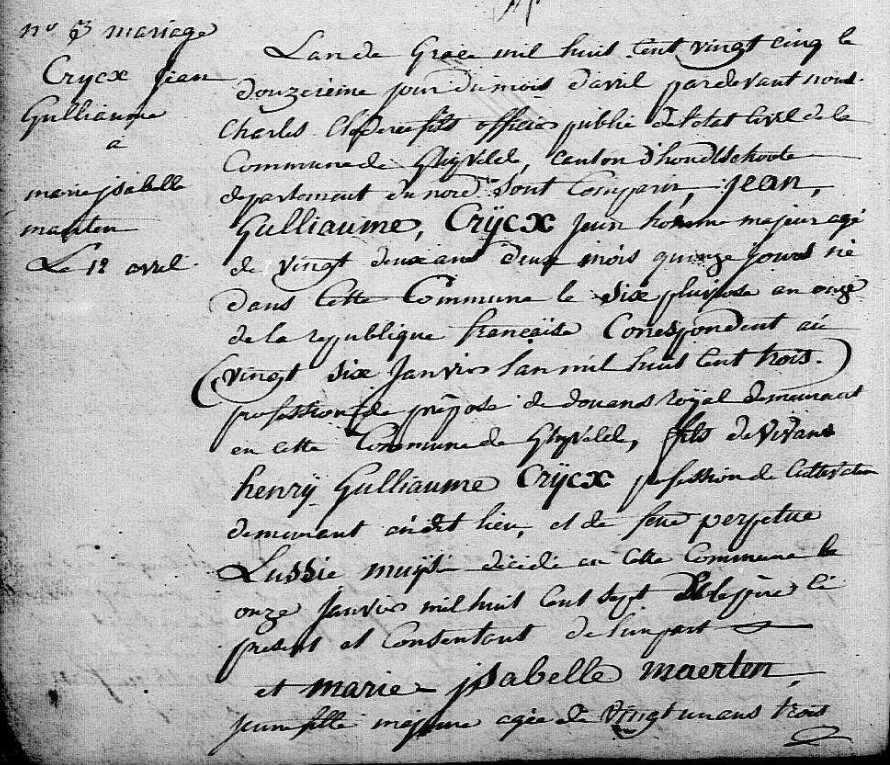 n.o 3 mariage
Crycx jean
Gulliaume
a
marie jsabelle
maerten
Le 12 avril
Lan de Grace mil huit cent vingt cinq le
douzieme jour du mois davril pardevant nous
Charles fils officier public de letat Civil de la
Commune de Ghyvelde, canton d'hondschoote
departement du nord Sont Comparu, jean,
Gulliaume, Crÿcx jeun homme majeur agé
de vingt deux ans deux mois quinze jours né
dans Cette Commune le Six pluviose an onze
de la republique francaise Corespondent au
(vingt six janvier lan mil huit cent trois.)
profession de préposé de douans roÿal demeurant
en cette Commune de Ghyvelde, fils de vivant
henrÿ Gulliaume Crÿcx profession de Cultivateur
demeurant audit lieu, et de feue perpetue
Lussie muÿs décédé en cette Commune le
onze janvier mil huit cent sept le père ci
present et Consentant de sun part
et marie jsabelle maerten,
jeune fille majeure agée de vingt un ans trois